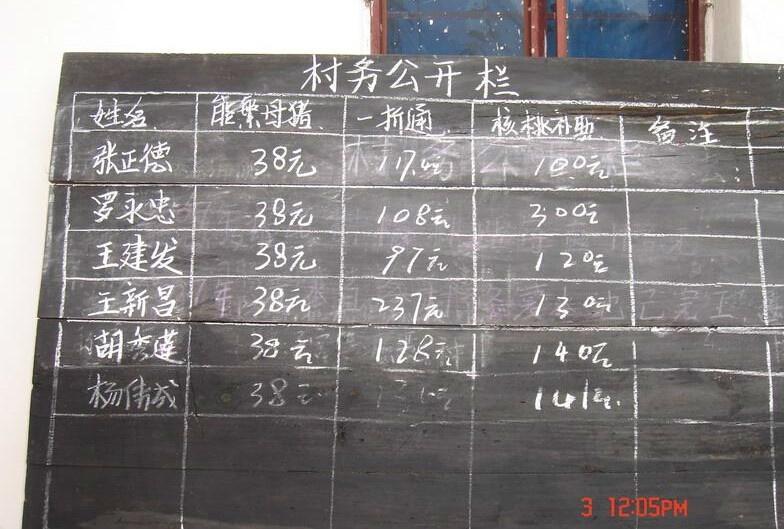 村务公开栏
姓名 能繁母猪 一折通 核桃补助 备注
张正德 38元 117元 100元
罗永忠 38元 108元 300元
王建发 38元 97元 120元
王新昌 38元 237元 130元
胡秀莲 38元 128元 140元
杨伟成 38元 141元
3 12:05PM